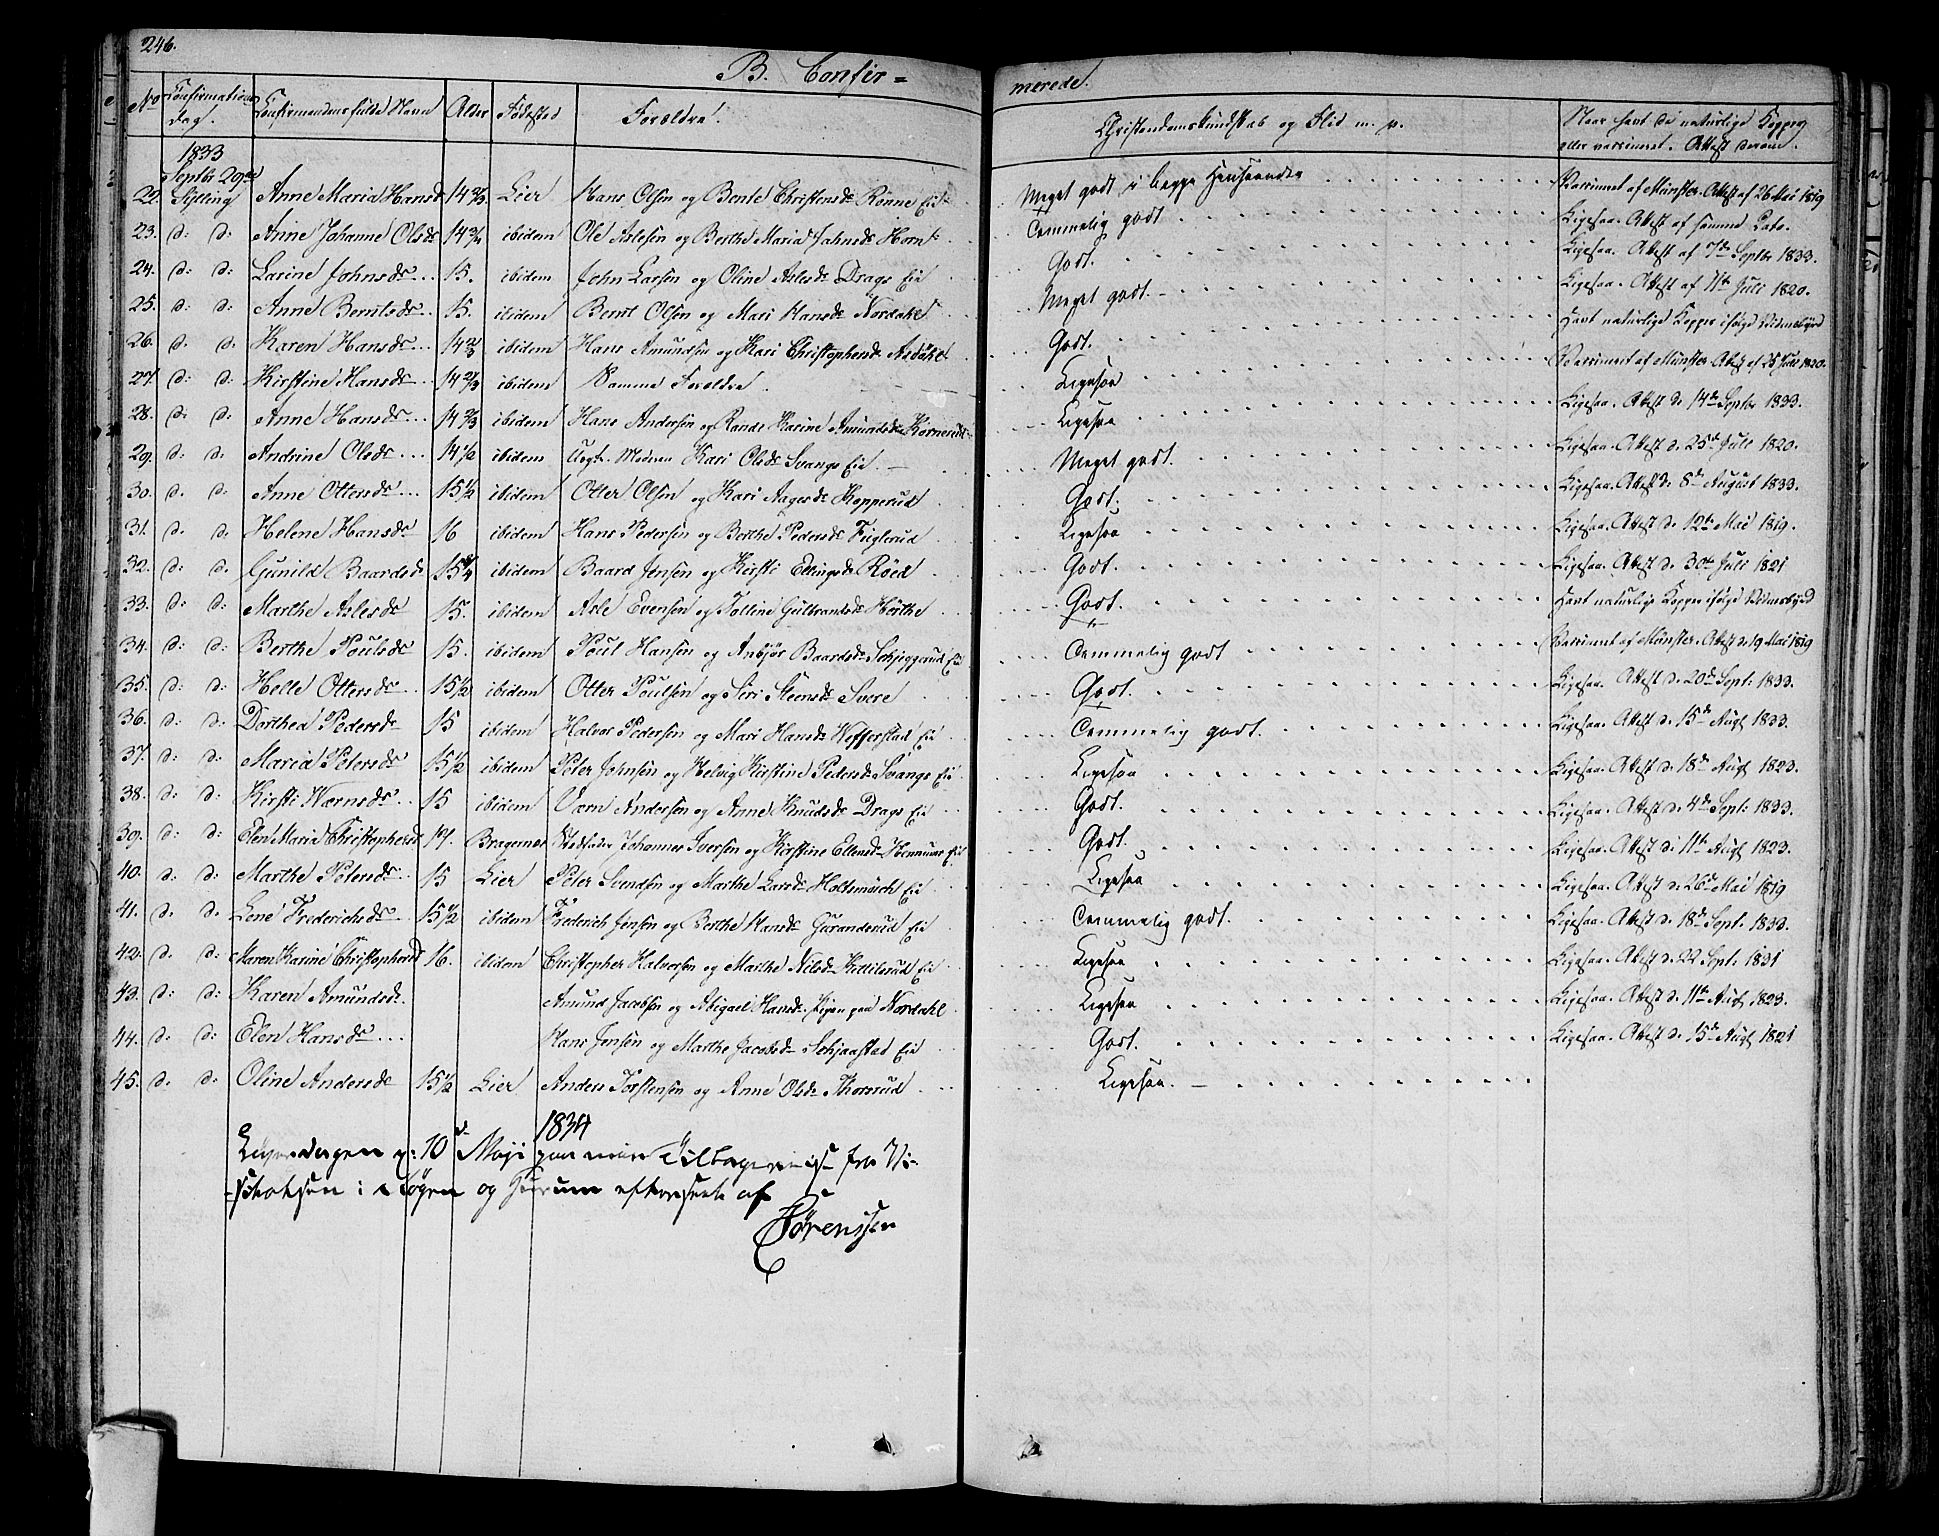 246.
B. Confir = merede.
No Confirmations dag. Confirmandens fulde Navn Alder Fødested Forældre. Christendomskundskab og Flid m. v. Naar havt de naturlige Kopper eller vaccineret. Attest derom.
1833
Septbr 29de
22. Sylling Anne Maria Hansd 14 2/3 Lier Hans Olsen og Bente Christensdr Rønne Eie Meget godt i begge Henseender Vaccineret af Münster. Attest af 26 Mai 1819
23. d: d: Anne Johanne Olsdr 14 3/4 ibidem Ole Aslesen og Berthe Maria Johnsdr Horn Temmelig godt Ligesaa. Attest af samme Dato.
24. d: d: Larine Johnsdr 15. ibidem John Larsen og Oline Aslesdr Drags Eie Godt. Ligesaa. Attest af 7de Septbr 1833.
25. d: d: Anne Berntsdr 15. ibidem Bernt Olsen og Mari Hansdr Nordahl Meget godt. Ligesaa. Attest af 11te Juli 1820.
26. d: d: Karen Hansdr 14 2/3 ibidem Hans Amundsen og Kari Christophersdr Asdøhl Godt. Havt naturlige Kopper ifølge Vidnesbyrd
27. d: d: Kirstine Hansdr 14 2/3 ibidem Samme Forældre Ligesaa Vaccineret af Münster. Attest af 25 Juli 1820.
28. d: d: Anne Hansdr 14 2/3 ibidem Hans Andersen og Rande Karine Amundsdr Kornerud Ligesaa Ligesaa. Attest d. 14de Septbr 1833.
29. d: d: Andrine Olsdr 14 1/2 ibidem Uegte. Moderen Kari Olsdr Svangs Eie Meget godt. Ligesaa. Attest d. 25de Juli 1820.
30. d. d: Anne Ottersdr 15 1/2 ibidem Otter Olsen og Kari Aagesdr Kopperud Godt. Ligesaa. Attest d. 8de August 1833.
31. d: d: Helene Hansdr 16 ibidem Hans Pedersen og Berthe Pedersdr Fuglerud Ligesaa Ligesaa. Attest d. 12te Mai 1819.
32. d: d: Gunild Baardsd 15 3/4 ibidem Baard Jensen og Kirsti Ellingsdr Røed Godt. Ligesaa. Attest d. 30te Juli 1821
33. d: d: Marthe Aslesdr 15. ibidem Asle Evensen og Tolline Gulbrandsdr Hørthe Godt. Havt naturlige Kopper ifølge Vidnesbyrd
34. d: d: Berthe Poulsdr 15. ibidem Poul Hansen og Anbjør Baardsdr Schjeggerud Eie Temmelig godt Vaccineret af Münster. Attest d. 19 Mai 1819
35. d: d: Helle Ottersdr 15 1/2 ibidem Otter Poulsen og Siri Steensdr Svere Godt. Ligesaa. Attest d. 20de Sept: 1833.
36. d: d: Dorthea Pedersdr 15 ibidem Halvor Pedersen og Mari Hansdr Wefferstad Eie Temmelig godt. Ligesaa. Attest d. 15de Augt 1833.
37. d: d: Maria Petersdr 15 1/2 ibidem Peter Johnsen og Helvig Kirstine Pedersdr Svangs Eie Ligesaa Ligesaa. Attest d. 18de Augt 1823.
38. d: d: Kirsti Wærnsdr 15 ibidem Værn Andersen og Anne Knudsdr Drags Eie Godt. Ligesaa. Attest d. 4de Sept: 1833.
39. d: d: Elen Maria Christophersd 19. Bragernes Stedfader Johannes Iversen og Kirstine Ellensdr Eie Godt. Ligesaa. Attest d: 11te Augt 1823.
40. d: d: Marthe Petersdr 15 Lier Peter Svendsen og Marthe Larsdr Eie Ligesaa Ligesaa. Attest d. 26de Mai 1819
41. d. d: Lene Frederichsdr 15 1/2 ibidem Frederich Jensen og Berthe Hansdr Guranderud Eie Temmelig godt. Ligesaa. Attest d. 18de Sept. 1833.
42. d: d: Maren Karine Christophersd 16. ibidem Christopher Halvorsen og Marthe Nilsdr Kittilsrud Eie Ligesaa Ligesaa. Attest d. 22 Sept: 1831
43. d: d: Karen Amundsdr Amund Jacobsen og Abigael Hansdr. Pigen paa Nordahl Ligesaa Ligesaa. Attest d. 11te Augt 1823.
44. d: d: Elen Hansdr Hans Jensen og Marthe Jacobsdr Schjaastad Eie Godt. Ligesaa. Attest d. 15de Augt 1821
45. d: d: Oline Andersdr 15 1/2 Lier Anders Torstensen og Anne Olsdr Thorsrud Ligesaa.
1834
Løverdagen d: 10de Maji paa min Tilbagereise fra Vi-
sitatsen i Røgen og Hurum efterseet af
Sørenssen